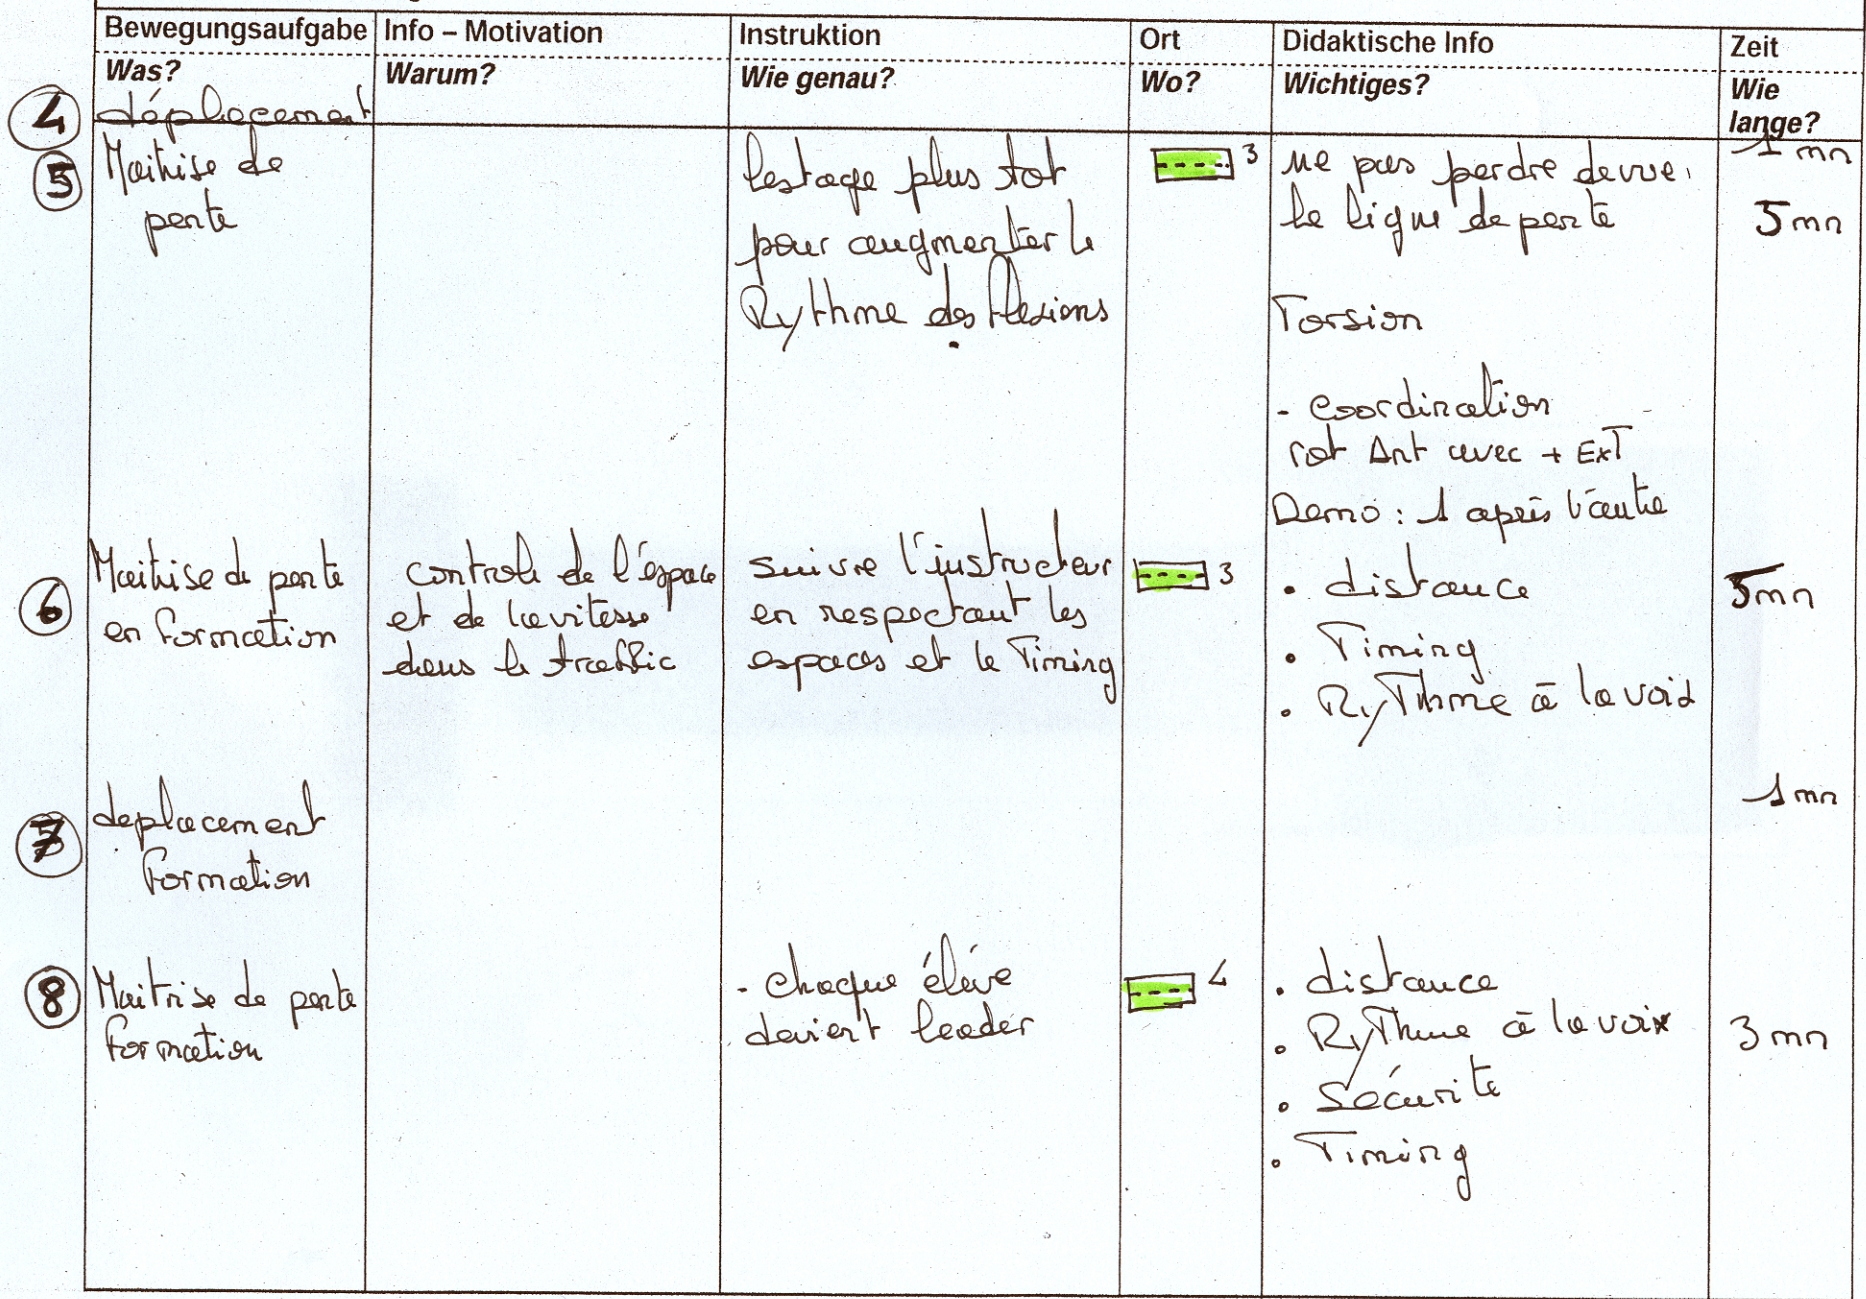 Bewegungsaufgabe Info – Motivation Instruktion Ort Didaktische Info Zeit
Was? Warum? Wie genau? Wo? Wichtiges? Wie lange?
4 déplacement 1 mn
5 Maitrise de
pente
lestage plus tot
pour augmenter le
Rythme des flexions
3
ne pas perdre de vue
la ligne de pente
5 mn
Torsion
- coordination
rot Ant avec + Ext
Demo : 1 après l'autre
6 Maitrise de pente
en formation
controle de l'éspace
et de la vitesse
dans le traffic
suivre l'instructeur
en respectant les
espaces et le Timing
3
• distance
• Timing
• RyThme à la voix
5mn
7 deplacement
formation
1 mn
8 Maitrise de pente
formation
- chaque éléve
devient leader
4
• distance
• RyThme à la voix
• Sécurité
• Timing
3 mn